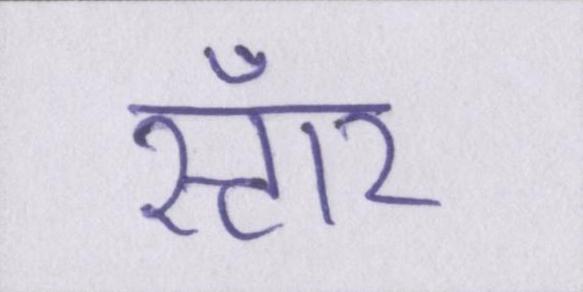 स्टॉर